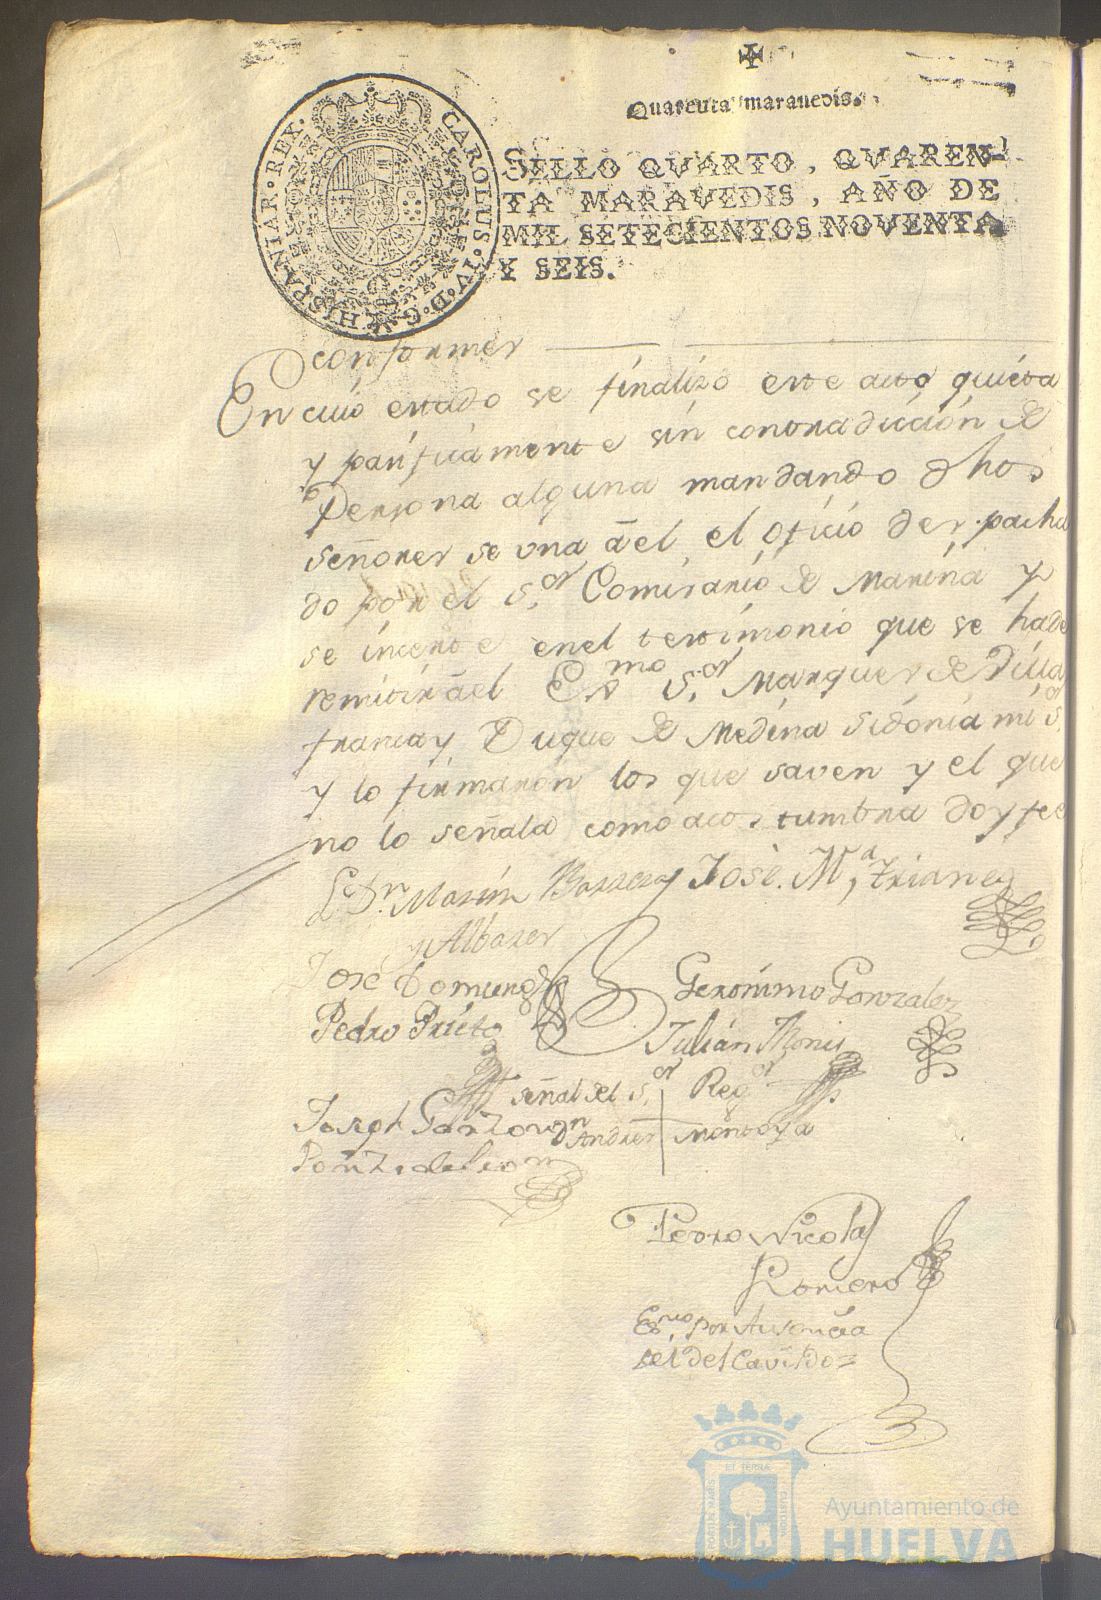 Quarenta maravedis.
SELLO QVARTO, QVAREN-
TA MARAVEDIS, AÑO DE
MIL SETECIENTOS NOVENTA
Y SEIS.
CAROLUS·IV·D·G· HISPANIAR·REX·
conformes
En cuio estado se finalizo este acto quieta
y pacificamente sin contradiccion de
Persona alguna mandando dhos
señores se una ā el el oficio despacha
do por el S.or Comisario de Marina y
se incerte en el testimonio que se ha de
remitir āel Exmo S.or Marques de Villa
franca y Duque de Medina Sidonia mi S.or
y lo firmaron los que saven y el que
no lo señala como acostumbra doy fee
Ldo. Dn. Martin Barrera
y Albares
José M.a Trianes
José Doming
Geronimo Gonzalez
Pedro Prieto
Julián
señal del S.or Reg.or
Joseph Garzon
Dn Andres Montoya
Ponze de Leon
Pedro Nicolas
Romero
Esno por Ausencia
del del Cavildo=
PORTUS MARIS
ET TERRÆ
CUSTODIA
Ayuntamiento de
HUELVA